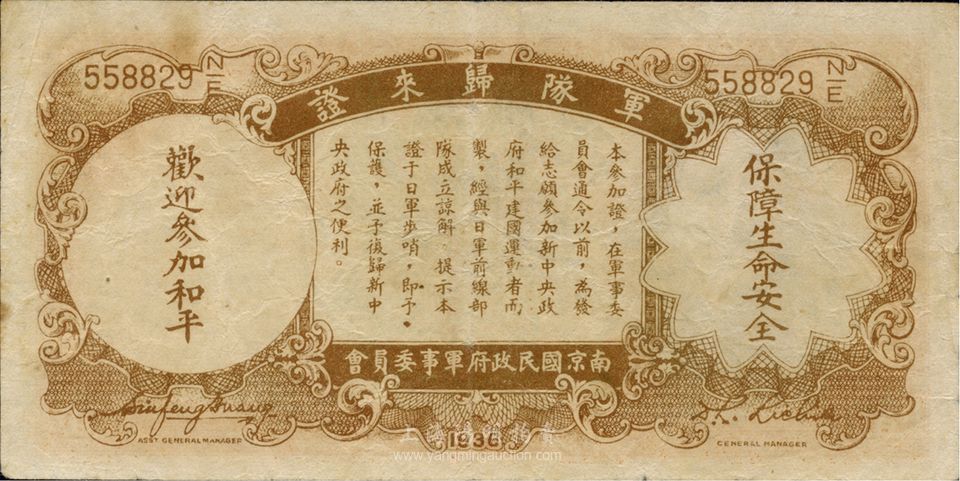 558829 N/E
558829 N/E
軍隊歸來證
保障生命安全
本參加證，在軍事委
員會通令以前，為發
給志願參加新中央政
府和平建國運動者而
製，經與日軍前線部
隊成立諒解，提示本
證于日軍步哨，即予
保護，並予復歸新中
央政府之便利。
歡迎參加和平
南京國民政府軍事委員會
ASST GENERAL MANAGER
1936
GENERAL MANAGER
www.yangmingauction.com